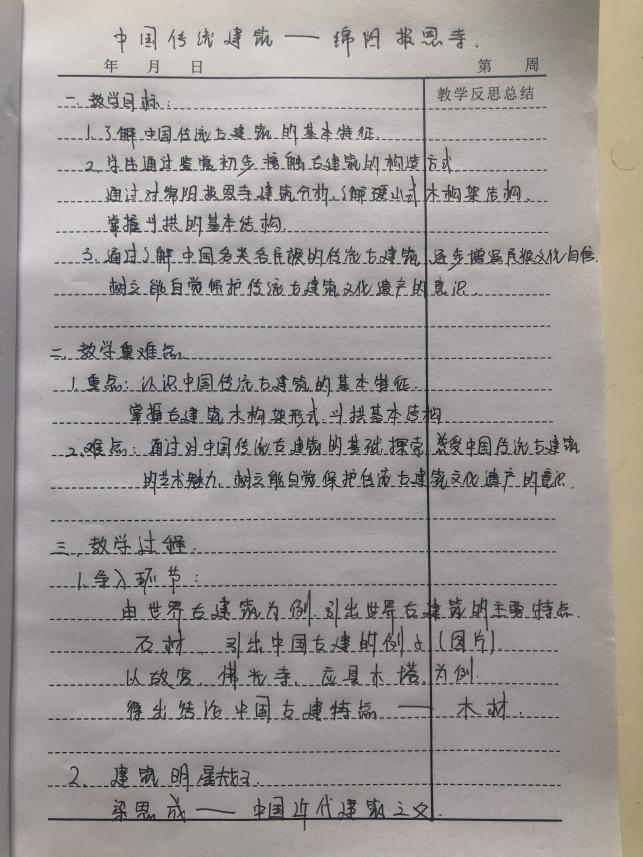 中国传统建筑——绵阳报恩寺.
年 月 日 第 周
教学反思总结
一.教学目标:
1.了解中国传统古建筑的基本特征.
2.学生通过鉴赏初步接触古建筑的构造方式
通过对绵阳报恩寺建筑分析,了解硬山式木构架结构.
掌握斗拱的基本结构.
3.通过了解中国各类各民族的传统古建筑,逐步增强民族文化自信.
树立能自觉保护传统古建筑文化遗产的意识.
二.教学重难点.
1.重点:认识中国传统古建筑的基本特征.
掌握古建筑木构架形式.斗拱基本结构
2.难点:通过对中国传统古建筑的基础探索,感受中国传统古建筑
的艺术魅力.树立能自觉保护传统古建筑文化遗产的意识.
三.教学过程.
1.导入环节:
由世界古建筑为例.引出世界古建筑的主要特点.
石材.引出中国古建的例子(图片).
以故宫、佛光寺、应县木塔.为例.
得出结论中国古建特点——木材.
2.建筑明星
梁思成——中国近代建筑之父.